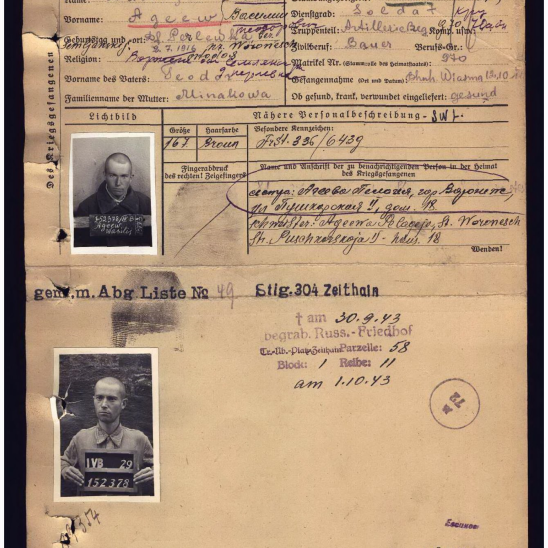 Vorname: Ageew Василий
Dienstgrad: Soldat
Truppenteil: Artillerie Reg. 970
Komp. usw.:
Geburtstag und -ort: 8.7.1916
Zivilberuf: Bauer Berufs-Gr.:
Religion:
Matrikel Nr. (Stammrolle des Heimatstaates): 970
Vorname des Vaters: Feodor
Gefangennahme (Ort und Datum)
Familienname der Mutter: Minakowa
Ob gesund, krank, verwundet eingeliefert: gesund
Des Kriegsgefangenen
Lichtbild
Nähere Personalbeschreibung
Größe Haarfarbe Besondere Kennzeichen:
167 braun FrSt. 336/6439
Fingerabdruck
des rechten! Zeigefingers
Name und Anschrift der zu benachrichtigenden Person in der Heimat
des Kriegsgefangenen
сестра: Агеева Пелагея, гор. Воронеж,
ул. Пушкарская 11, дом. 18
Schwester: Ageewa Pelageja, St. Woronesch
Str. Puschkarskaja 11 - haus. 18
Wenden!
152378
Ageew
Wasilij
gem. m. Abg Liste № 49 Stlg. 304 Zeithain
† am 30.9.43
begrab. Russ.-Friedhof
Tr.-Üb.-Platz Zeithain Parzelle: 58
Block: 1 Reihe: 11
am 1.10.43
72
IVB 29
152378